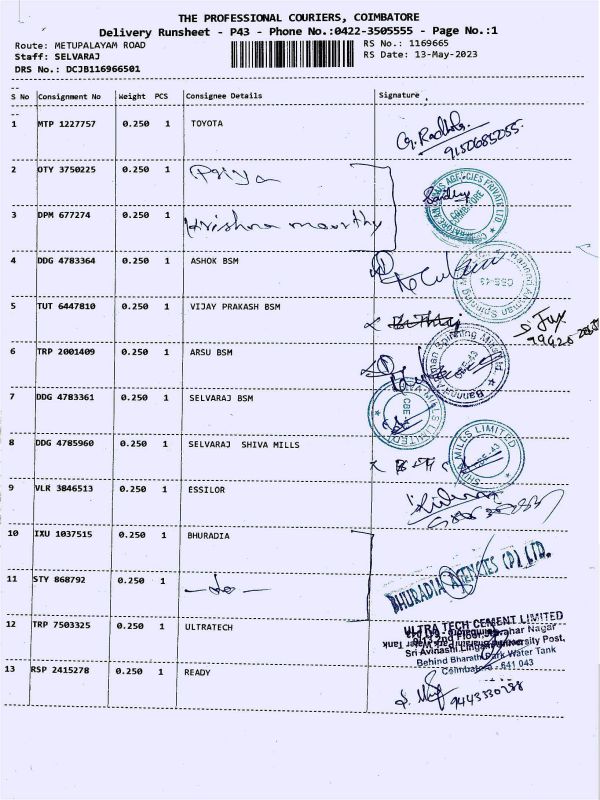 THE PROFESSIONAL COURIERS, COIMBATORE
Delivery Runsheet - P43 - Phone No.:0422-3505555 - Page No.:1
Route: METUPALAYAM ROAD RS No.: 1169665
Staff: SELVARAJ RS Date: 13-May-2023
DRS No.: DCJB116966501
S No Consignment No Weight PCS Consignee Details Signature
1 MTP 1227757 0.250 1 TOYOTA
9150685055
2 OTY 3750225 0.250 1 Priya
3 DPM 677274 0.250 1 Krishna moorthy
4 DDG 4783364 0.250 1 ASHOK BSM
5 TUT 6447810 0.250 1 VIJAY PRAKASH BSM
6 TRP 2001409 0.250 1 ARSU BSM
7 DDG 4783361 0.250 1 SELVARAJ BSM
8 DDG 4785960 0.250 1 SELVARAJ SHIVA MILLS
SHIVA MILLS LIMITED
9 VLR 3846513 0.250 1 ESSILOR
10 IXU 1037515 0.250 1 BHURADIA
BHURADIA AGENCIES (P) LTD.
11 STY 868792 0.250 1 -do-
12 TRP 7503325 0.250 1 ULTRATECH
ULTRA TECH CEMENT LIMITED
Sri Avinashi Lingam University Post,
Behind Bharathi Park Water Tank
Coimbatore - 641 043
13 RSP 2415278 0.250 1 READY
9443330288